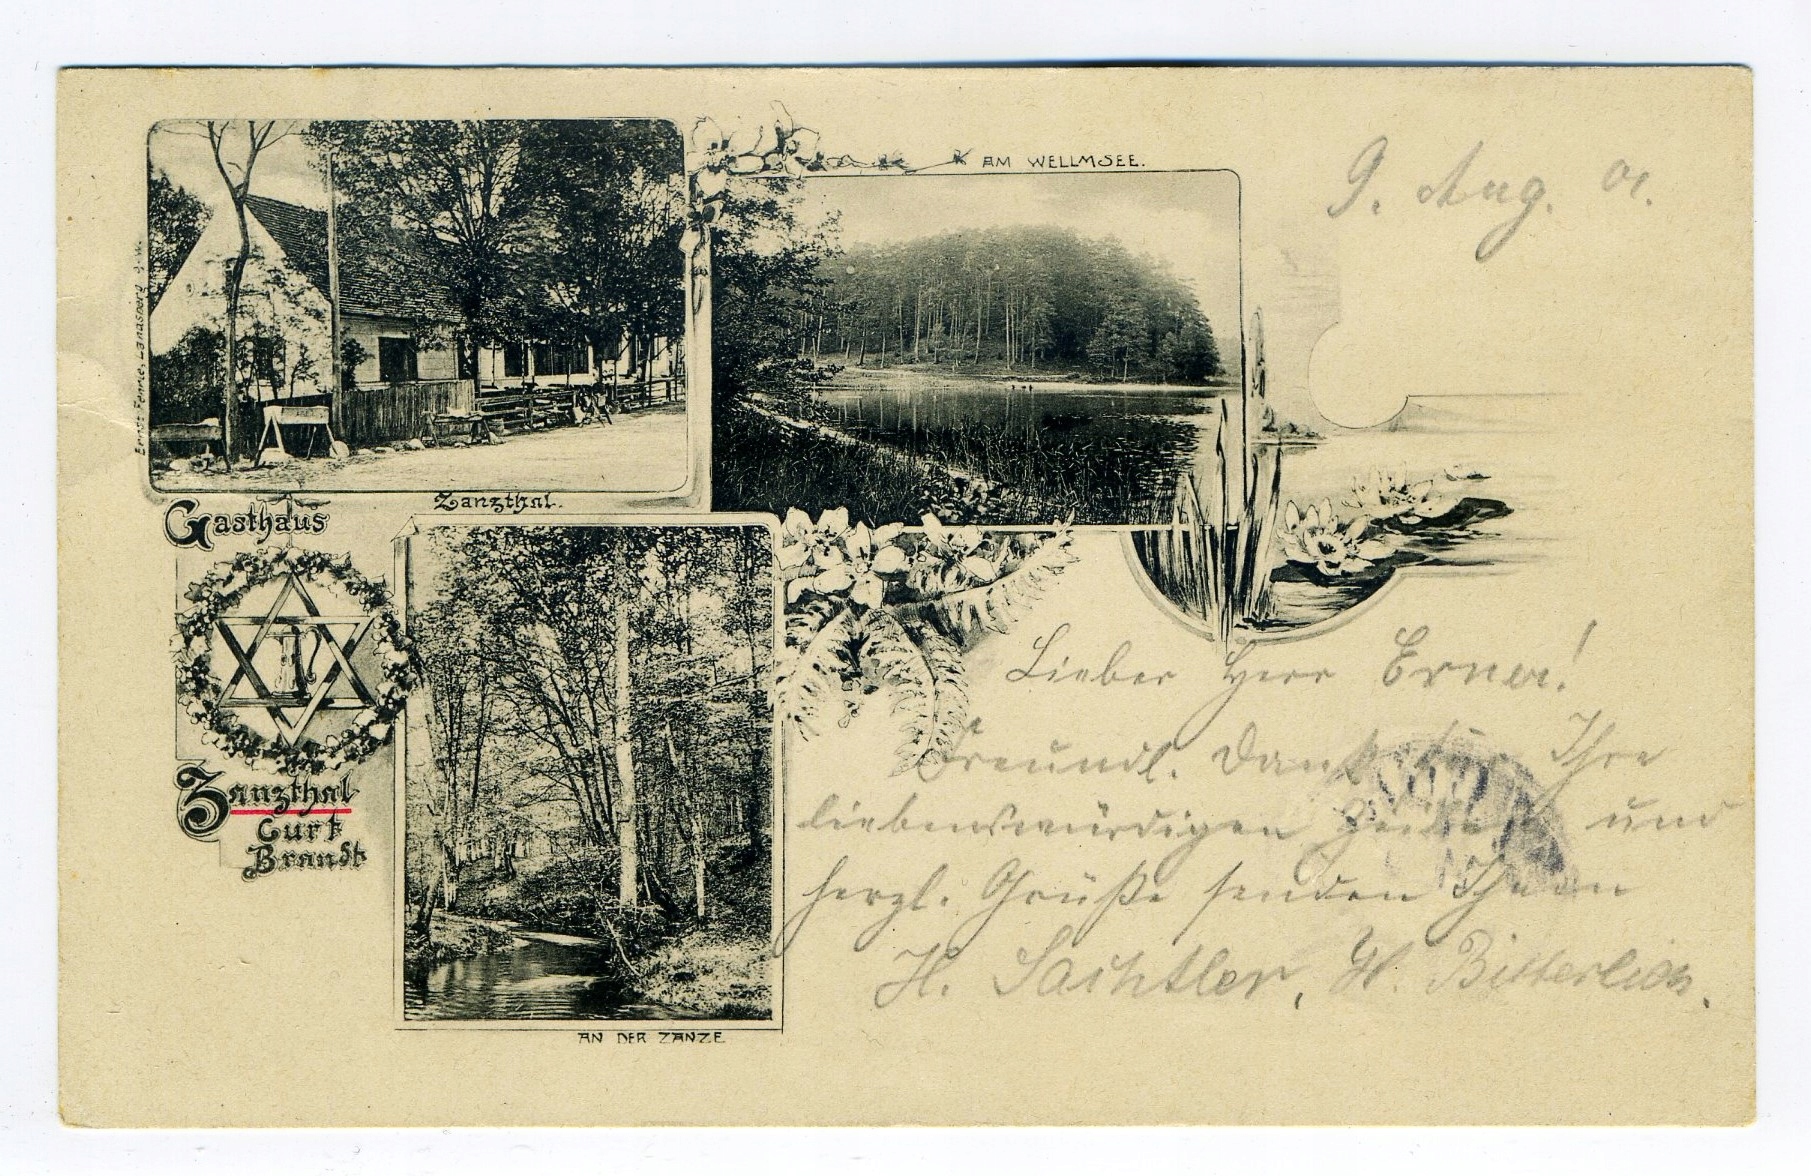 AM WELLMSEE.
9. Aug. 01.
Zanzthal.
Gasthaus
Zanzthal
Curt
Brandt
AN DER ZANZE
Lieber Herr Erner!
Freundl. Dank für Ihre
liebenswürdigen Zeilen und
herzl. Grüße senden Ihnen
H. Sachtler, W. Bitterlich.